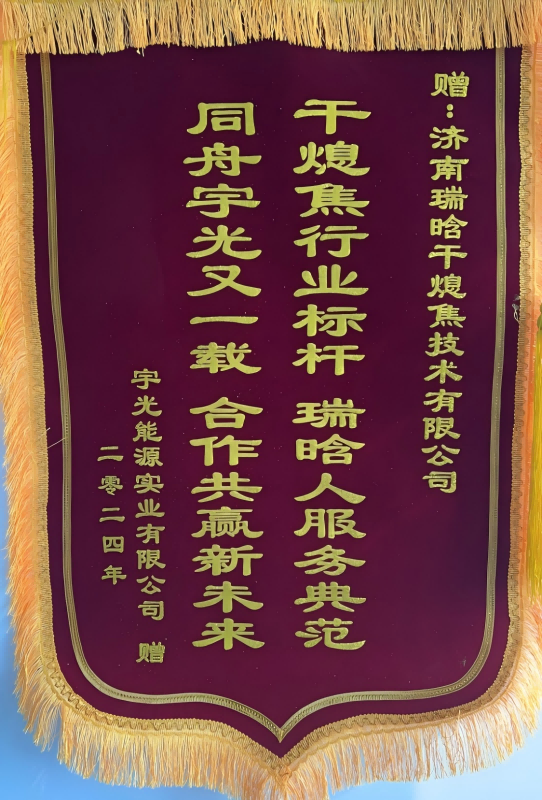 赠：济南瑞晗干熄焦技术有限公司
干熄焦行业标杆 瑞晗人服务典范
同舟宇光又一载 合作共赢新未来
宇光能源实业有限公司 赠
二零二四年